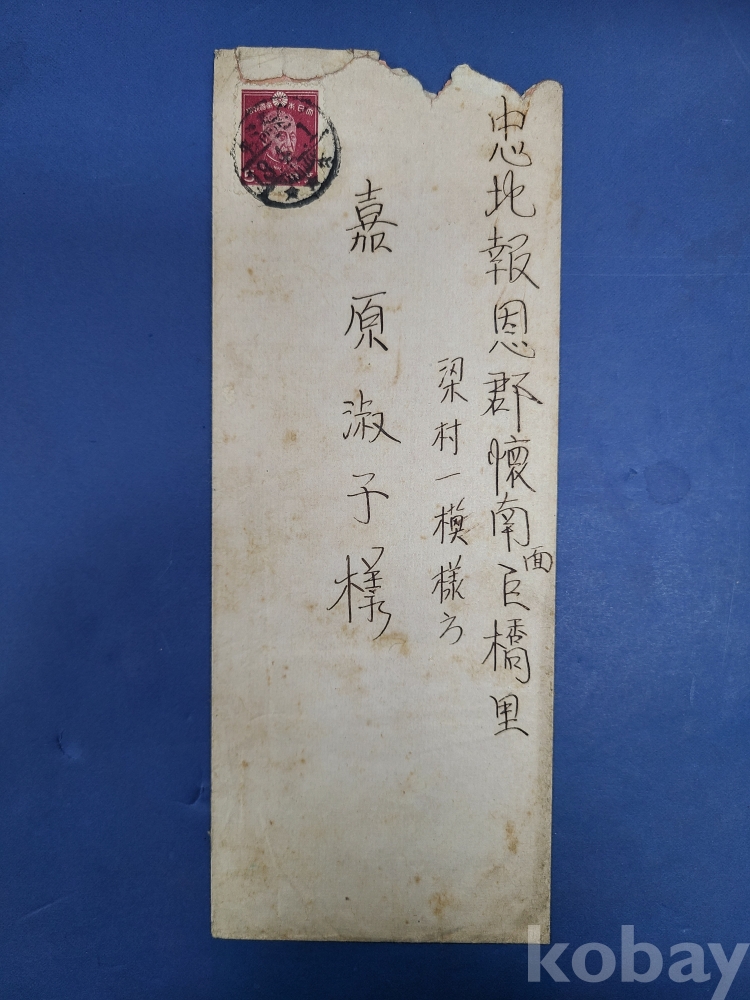 忠北報恩郡懷南面巨橋里
梁村一模樣方
嘉原淑子様
kobay